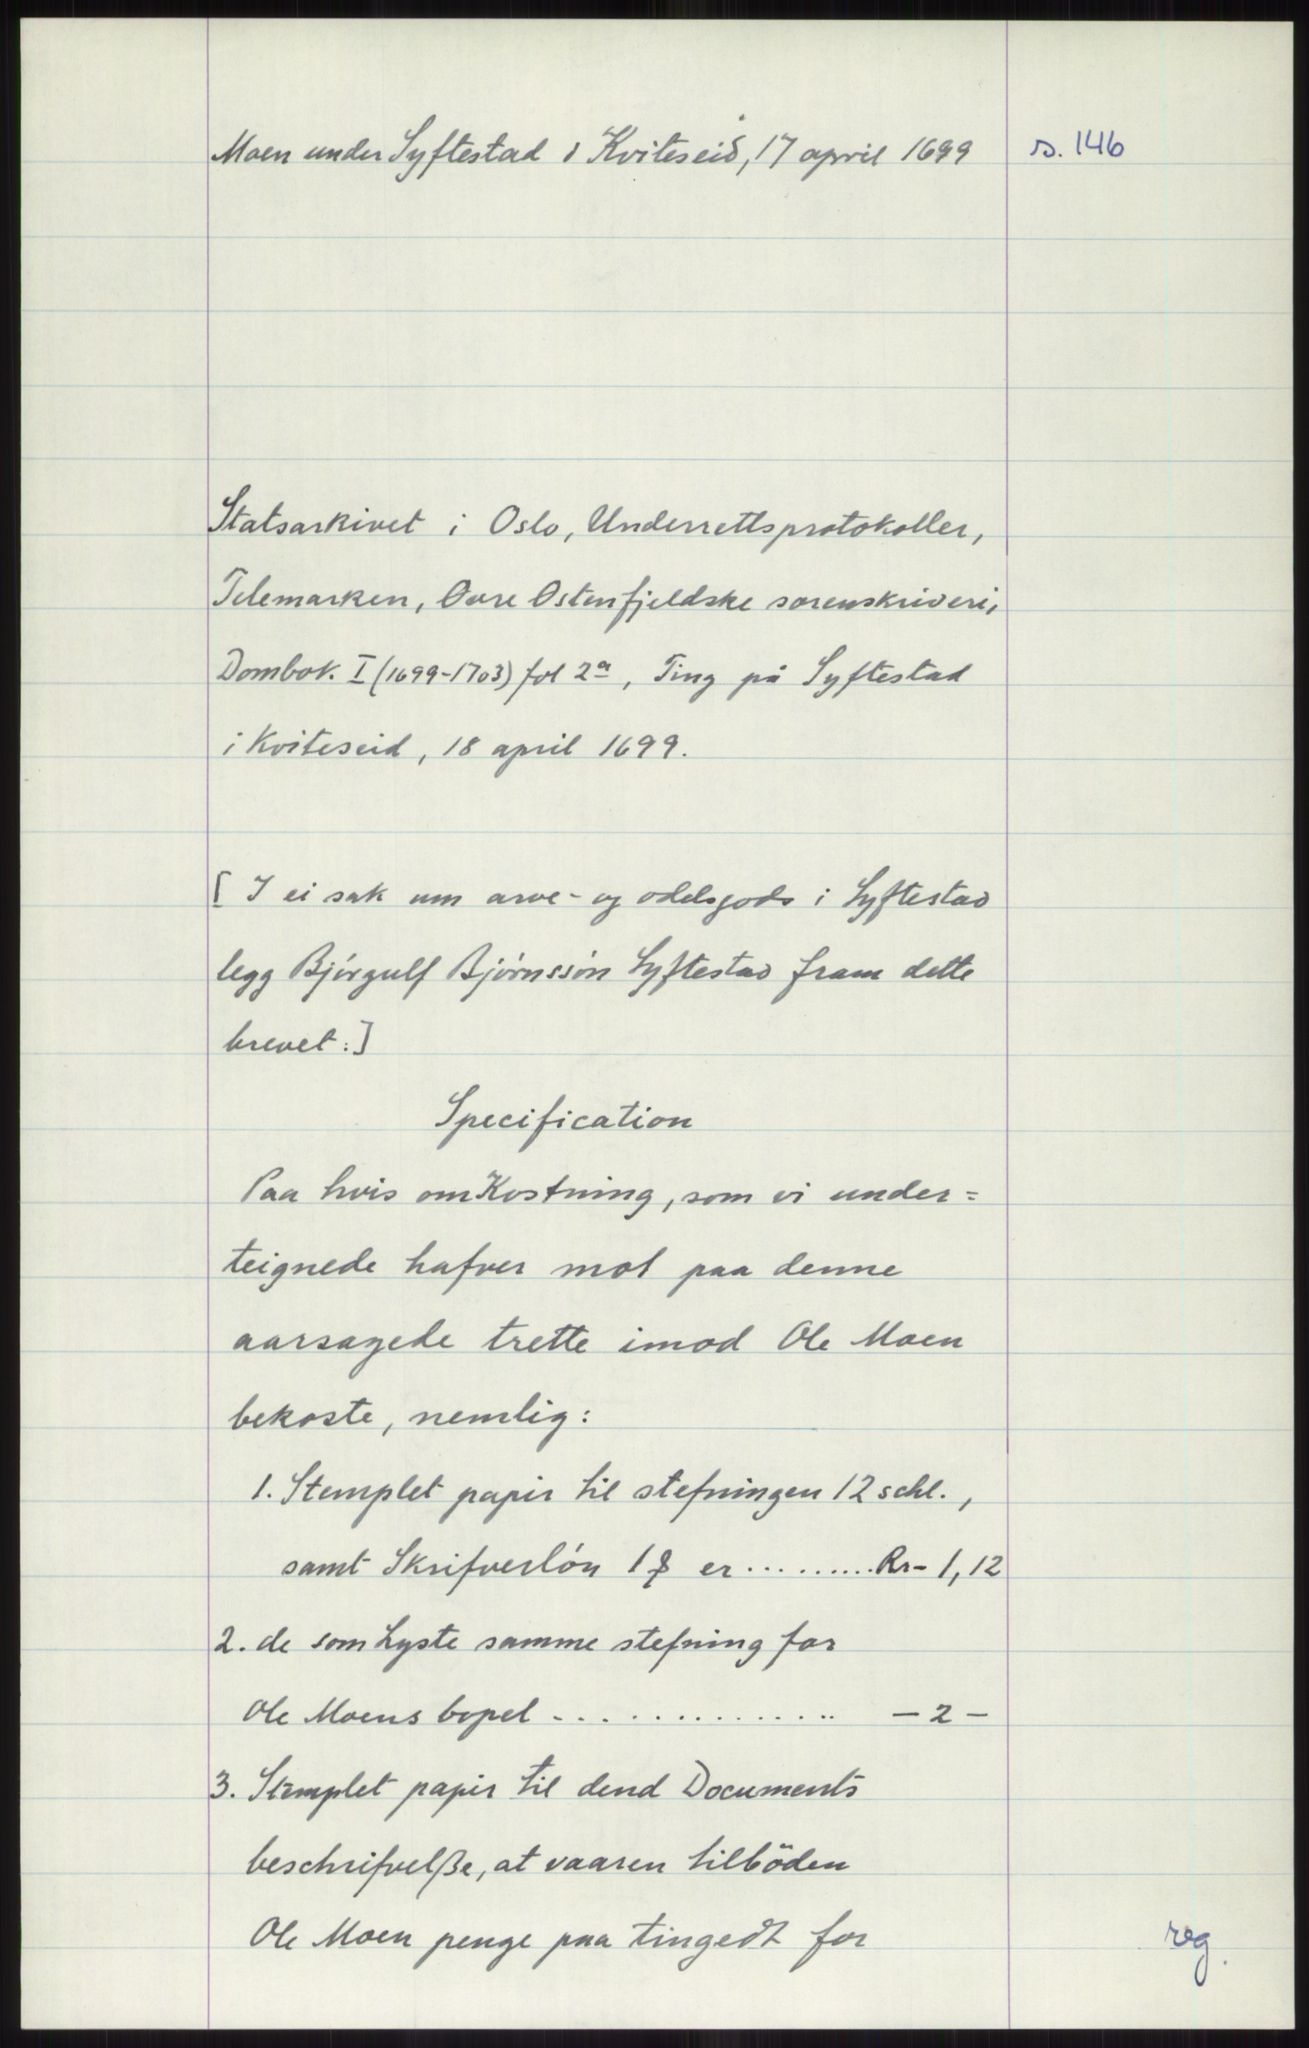 Moen under Syftestad i Kviteseid, 17 april 1699
s. 146
Statsarkivet i Oslo, Underrettsprotokoller,
Telemarken, Øvre Østenfjeldske sorenskriveri,
Dombok. I (1699-1703) fol 2a, Ting på Syftestad
i Kviteseid, 18 april 1699.
[ I ei sak um arve- og odelsgods i Syftestad
legg Bjórgulf Bjórnssón Syftestad fram dette
brevet:]
Specification
Paa hvis omKostning, som vi under=
teignede hafver mot paa denne
aarsagede trette imod Ole Moen
bekoste, nemlig:
1. Stemplet papir til stefningen 12 schl.,
samt Skrifverlón 1 ꝭ er .......... Rr- 1, 12
2. de som Lyste samme stefning for
Ole Moens bopel - . . . . . . . . . . . . .. - 2 -
3. Stemplet papir til dend Documents
beschrifvelße, at vaaren tilböden
Ole Moen penge paa tingedt for
reg.